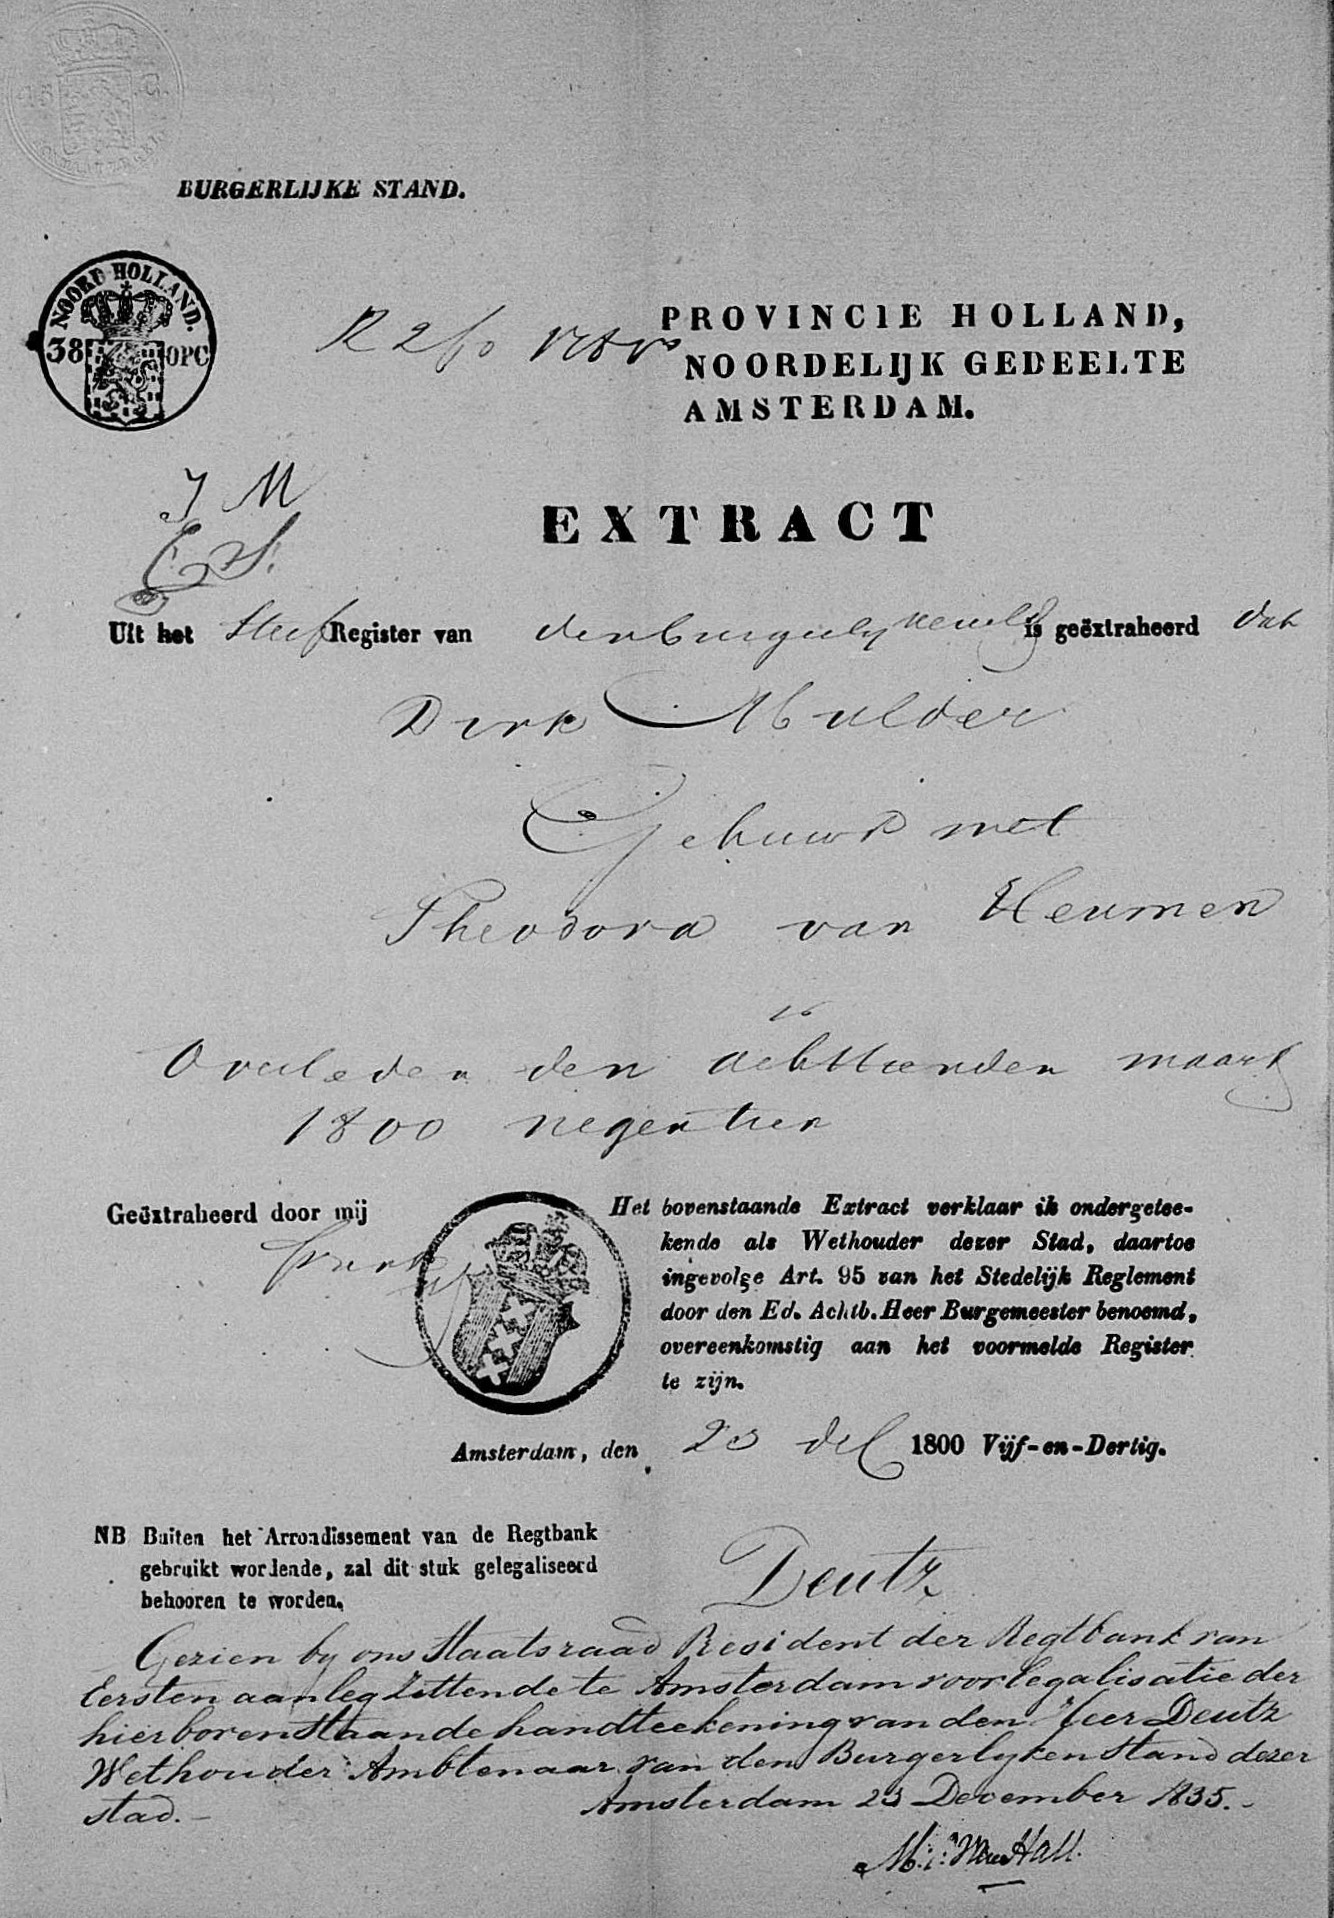 BURGERLIJKE STAND.
NOORD HOLLAND.
38 OPC
R 2 fo
PROVINCIE HOLLAND,
NOORDELIJK GEDEELTE
AMSTERDAM.
J M
E S.
EXTRACT
Uit het Sterf Register van den burgerlyken is geëxtraheerd dat
Dirk Mulder
Gehuwd met
Theodora van Heumen
Overleden den achttienden maart
1800 negentien
Geëxtraheerd door mij
Het bovenstaande Extract verklaar ik ondergetee-
kende als Wethouder dezer Stad, daartoe
ingevolge Art. 95 van het Stedelijk Reglement
door den Ed. Achtb. Heer Burgemeester benoemd,
overeenkomstig aan het voormelde Register
te zijn.
Amsterdam, den 23 dec 1800 Vijf-en-Dertig.
NB Buiten het Arrondissement van de Regtbank
gebruikt wordende, zal dit stuk gelegaliseerd
behooren te worden.
Deutz
Gezien by ons Staatsraad President der Regtbank van
Eersten aanleg Zittende te Amsterdam voor legalisatie der
hierboven staande handteekening van den Heer Deutz
Wethouder Ambtenaar van den Burgerlyken stand dezer
stad.- Amsterdam 23 December 1835.-
M: C: Van Hall.